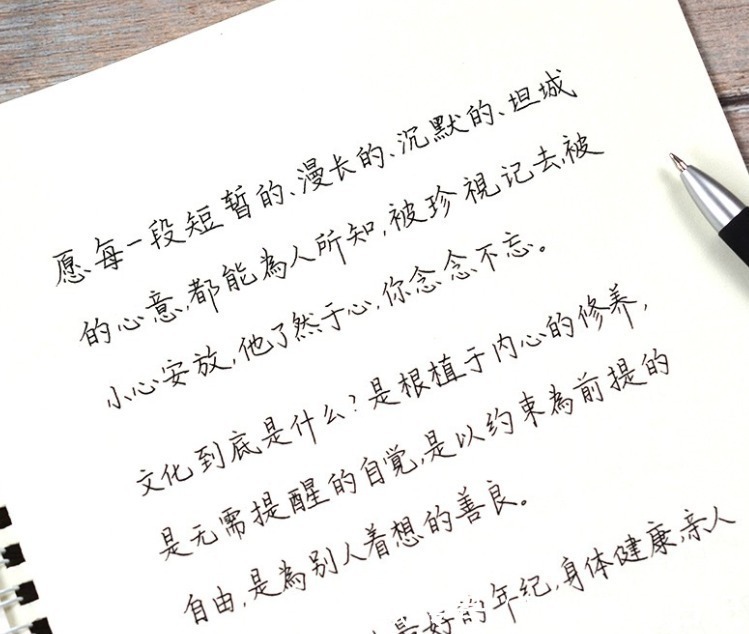 愿每一段短暂的、漫长的、沉默的、坦城
的心意,都能為人所知,被珍視记去,被
小心安放,他了然于心,你念念不忘。
文化到底是什么?是根植于内心的修养,
是无需提醒的自觉,是以约束為前提的
自由,是為别人着想的善良。
最好的年纪,身体健康,亲人